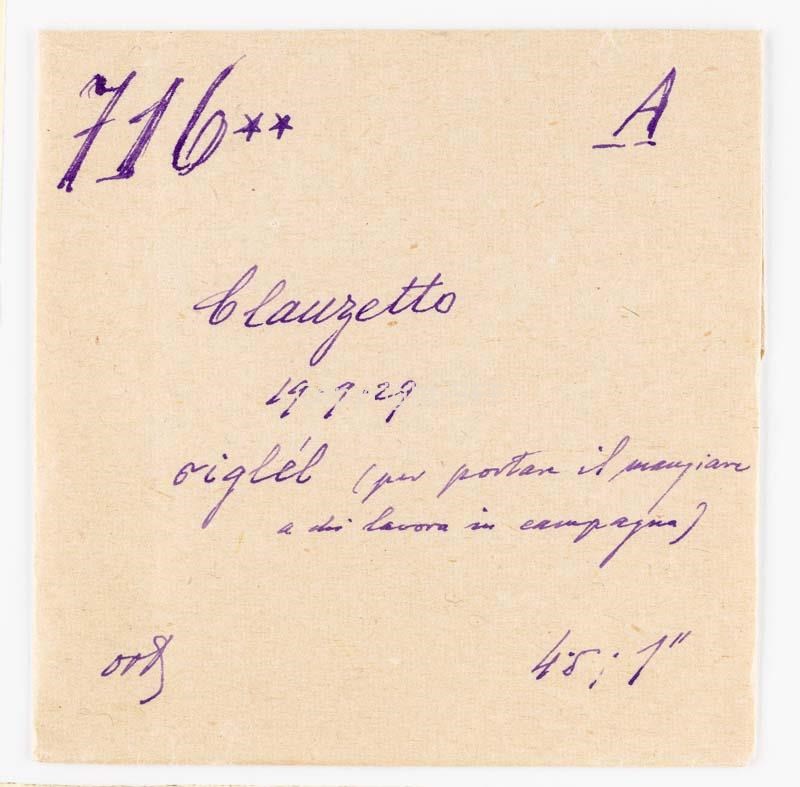 716** A
Clauzetto
19·9·29
siglél (per portare il mangiare
a chi lavora in campagna)
4·5 ; 1"